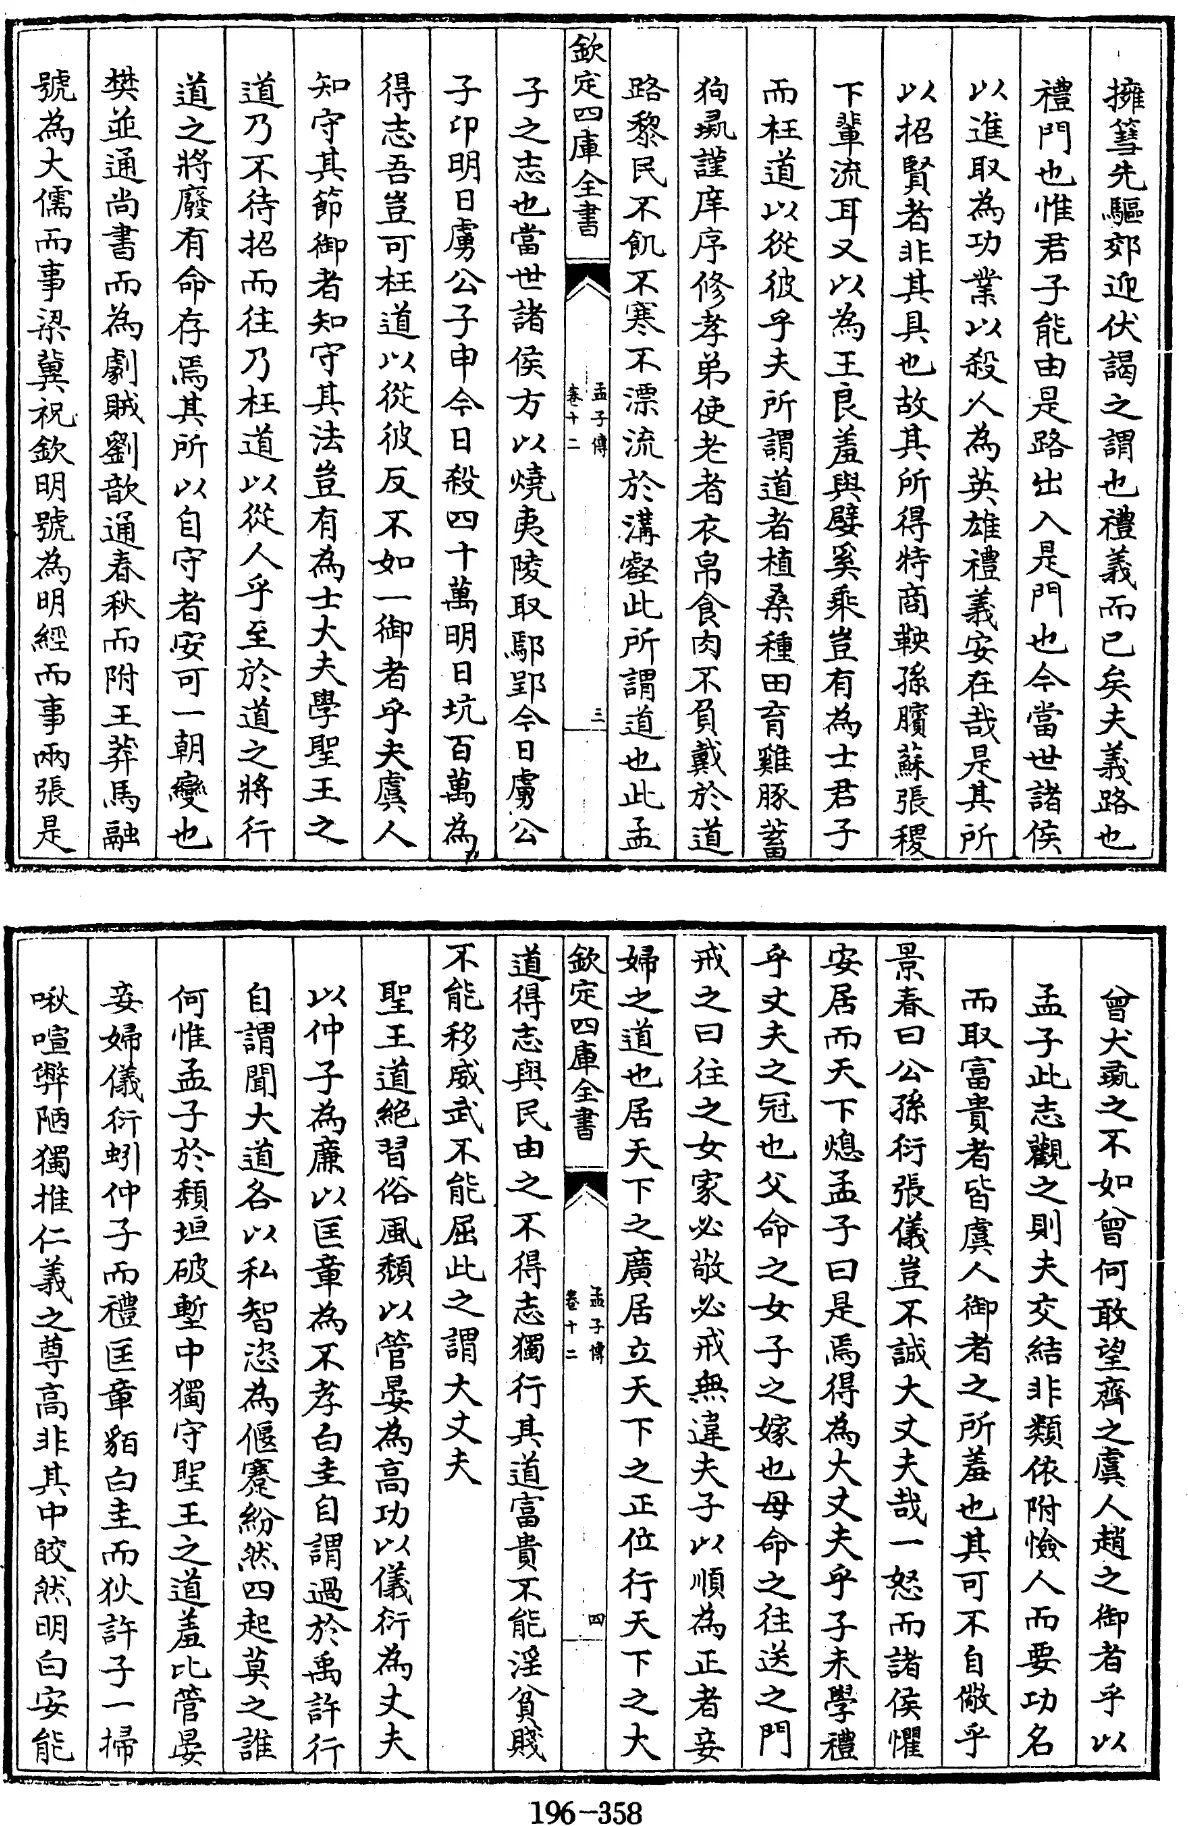 擁篲先驅郊迎伏謁之謂也禮義而已矣夫義路也
禮門也惟君子能由是路出入是門也今當世諸侯
以進取為功業以殺人為英雄禮義安在哉是其所
以招賢者非其具也故其所得特商鞅孫臏蘇張稷
下輩流耳又以為王良羞與嬖奚乘豈有為士君子
而枉道以從彼乎夫所謂道者植桑種田育雞豚蓄
狗彘謹庠序修孝弟使老者衣帛食肉不負戴於道
路黎民不飢不寒不漂流於溝壑此所謂道也此孟
欽定四庫全書
孟子傳
卷十二
三
子之志也當世諸侯方以燒夷陵取鄢郢今日虜公
子卬明日虜公子申今日殺四十萬明日坑百萬為
得志吾豈可枉道以從彼反不如一御者乎夫虞人
知守其節御者知守其法豈有為士大夫學聖王之
道乃不待招而往乃枉道以從人乎至於道之將行
道之將廢有命存焉其所以自守者安可一朝變也
樊並通尚書而為劇賊劉歆通春秋而附王莽馬融
號為大儒而事梁冀祝欽明號為明經而事兩張是
曾犬彘之不如曾何敢望齊之虞人趙之御者乎以
孟子此志觀之則夫交結非類依附憸人而要功名
而取富貴者皆虞人御者之所羞也其可不自儆乎
景春曰公孫衍張儀豈不誠大丈夫哉一怒而諸侯懼
安居而天下熄孟子曰是焉得為大丈夫乎子未學禮
乎丈夫之冠也父命之女子之嫁也母命之往送之門
戒之曰往之女家必敬必戒無違夫子以順為正者妾
婦之道也居天下之廣居立天下之正位行天下之大
欽定四庫全書
孟子傳
卷十二
四
道得志與民由之不得志獨行其道富貴不能淫貧賤
不能移威武不能屈此之謂大丈夫
聖王道絕習俗風頹以管晏為高功以儀衍為丈夫
以仲子為廉以匡章為不孝白圭自謂過於禹許行
自謂聞大道各以私智恣為偃蹇紛然四起莫之誰
何惟孟子於頹垣破塹中獨守聖王之道羞比管晏
妾婦儀衍蚓仲子而禮匡章貊白圭而狄許子一掃
啾喧弊陋獨推仁義之尊高非其中皎然明白安能
196-358